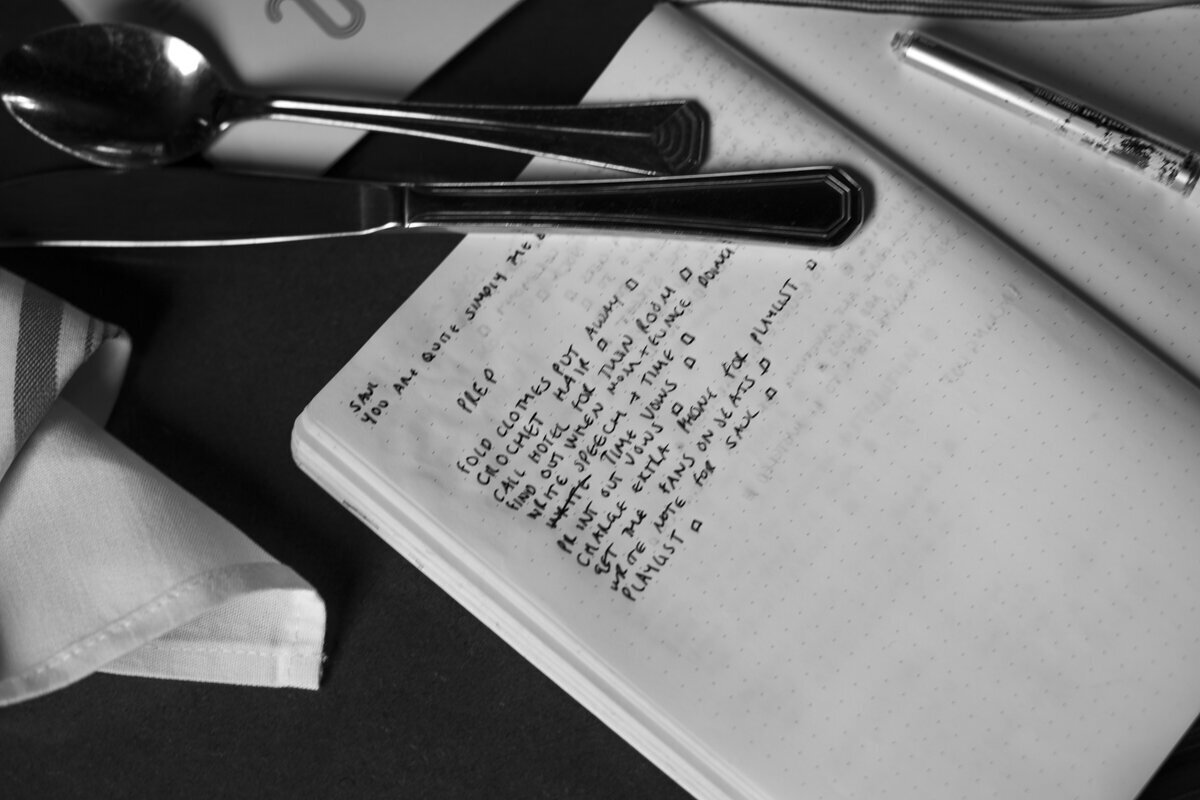 SAUL
YOU ARE QUITE SIMPLY THE
PREP
FOLD CLOTHES PUT AWAY □
CROCHET HAIR □
CALL HOTEL FOR TWIN ROOM □
FIND OUT WHEN MUM + EUNICE
WRITE SPEECH + TIME □
WRITE TIME VOWS □
PRINT OUT VOWS □
CHARGE EXTRA PHONE FOR PLAYLIST □
GET THE FANS ON SEATS □
WRITE NOTE FOR SAUL □
PLAYLIST □